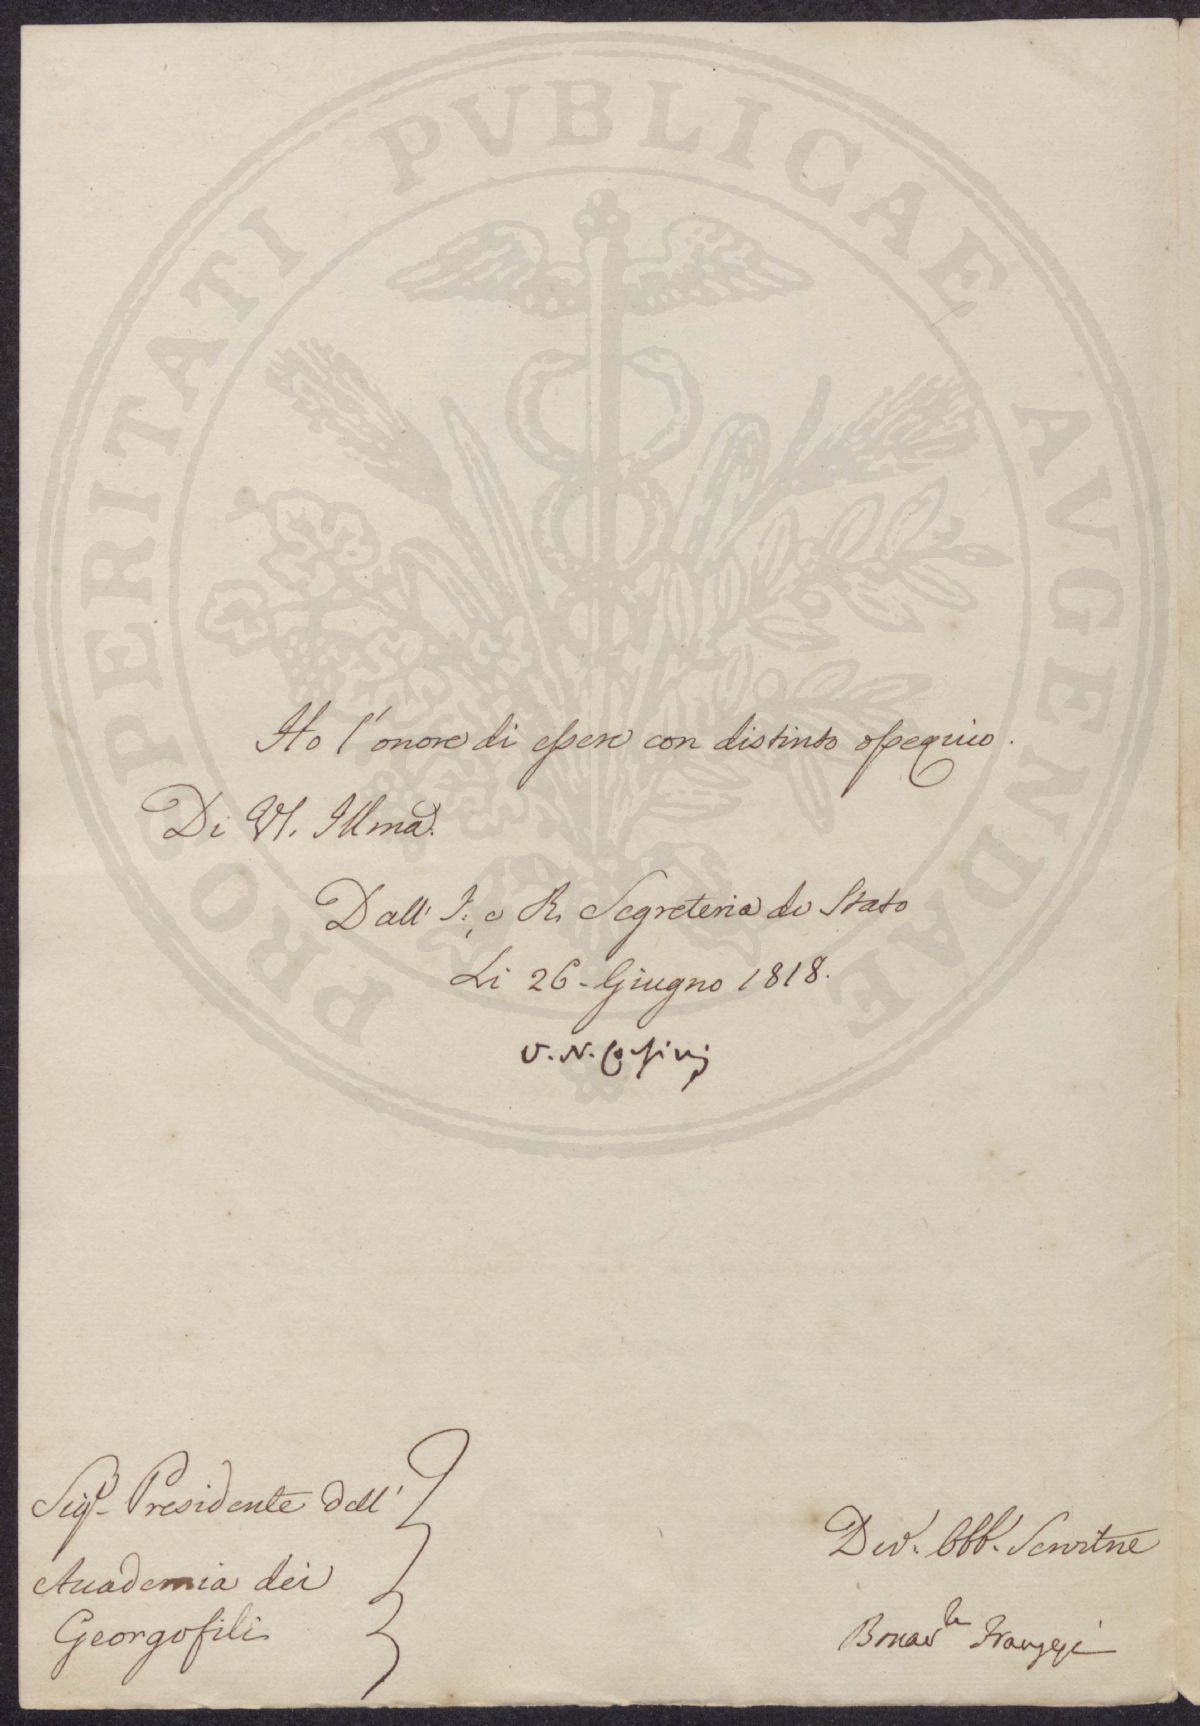 PROSPERITATI PVBLICAE AVGENDAE
Ho l'onore di essere con distinto ossequio.
Di VS. Illma.
Dall' I. e R. Segreteria di Stato
Li 26 - Giugno 1818.
V. N. Corsini
Sigr. Presidente dell'
Accademia dei
Georgofili
Dev. Obb. Servitore